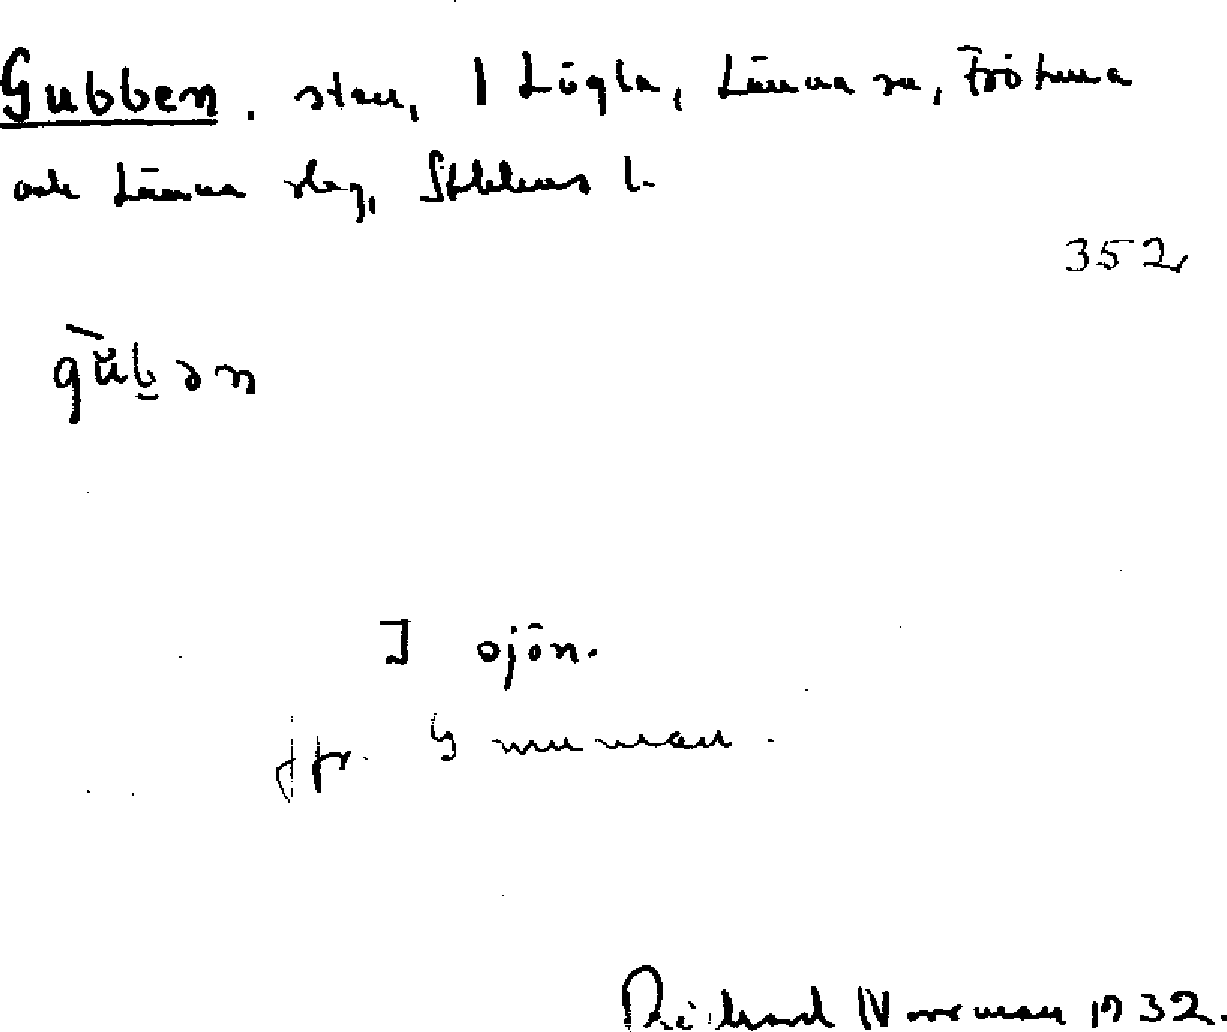 Gubben. sten, 1 Lögla, Länna sn, Frötuna
och Länna slag, Stockholms l.
352
gŭb̬ən
I sjön.
jfr. Gumman.
Richard Norrman 1932.